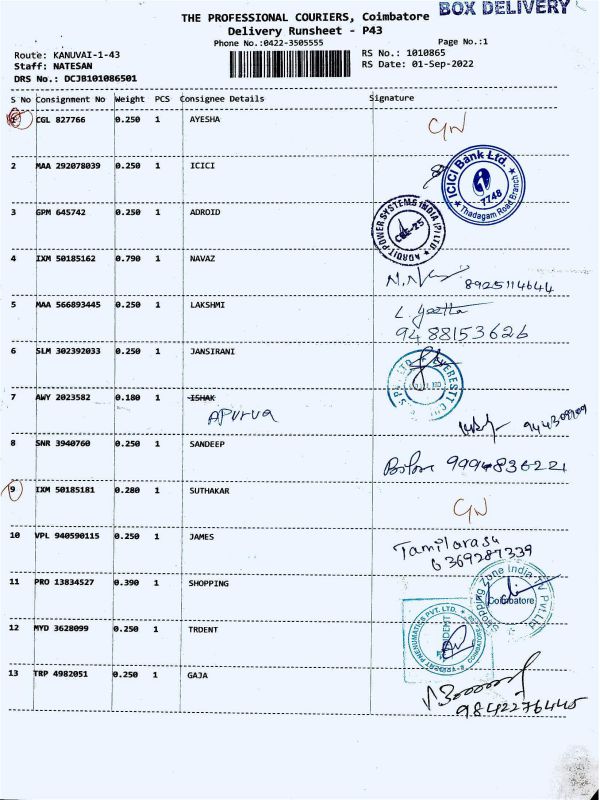 BOX DELIVERY
THE PROFESSIONAL COURIERS, Coimbatore
Delivery Runsheet - P43
Phone No.:0422-3505555
Page No.:1
Route: KANUVAI-1-43
RS No.: 1010865
Staff: NATESAN
RS Date: 01-Sep-2022
DRS No.: DCJB101086501
S No Consignment No Weight PCS Consignee Details Signature
1 CGL 827766 0.250 1 AYESHA
2 MAA 292078039 0.250 1 ICICI
ICICI Bank Ltd.
7748
Thadagam Road Branch
3 GPM 645742 0.250 1 ADROID
ADROIT POWER SYSTEMS INDIA (P) LTD
CBE-25
4 IXM 50185162 0.790 1 NAVAZ
8925114644
5 MAA 566893445 0.250 1 LAKSHMI
9488153626
6 SLM 302392033 0.250 1 JANSIRANI
7 AWY 2023582 0.180 1 ISHAK
Apurva
8 SNR 3940760 0.250 1 SANDEEP
9994836221
9 IXM 50185181 0.280 1 SUTHAKAR
10 VPL 940590115 0.250 1 JAMES
Tamilarasu
6369287339
11 PRO 13834527 0.390 1 SHOPPING
Shopping Zone India TV Pvt Ltd
Coimbatore
12 MYD 3628099 0.250 1 TRDENT
TRIDENT PNEUMATICS PVT. LTD.
13 TRP 4982051 0.250 1 GAJA
9842276445